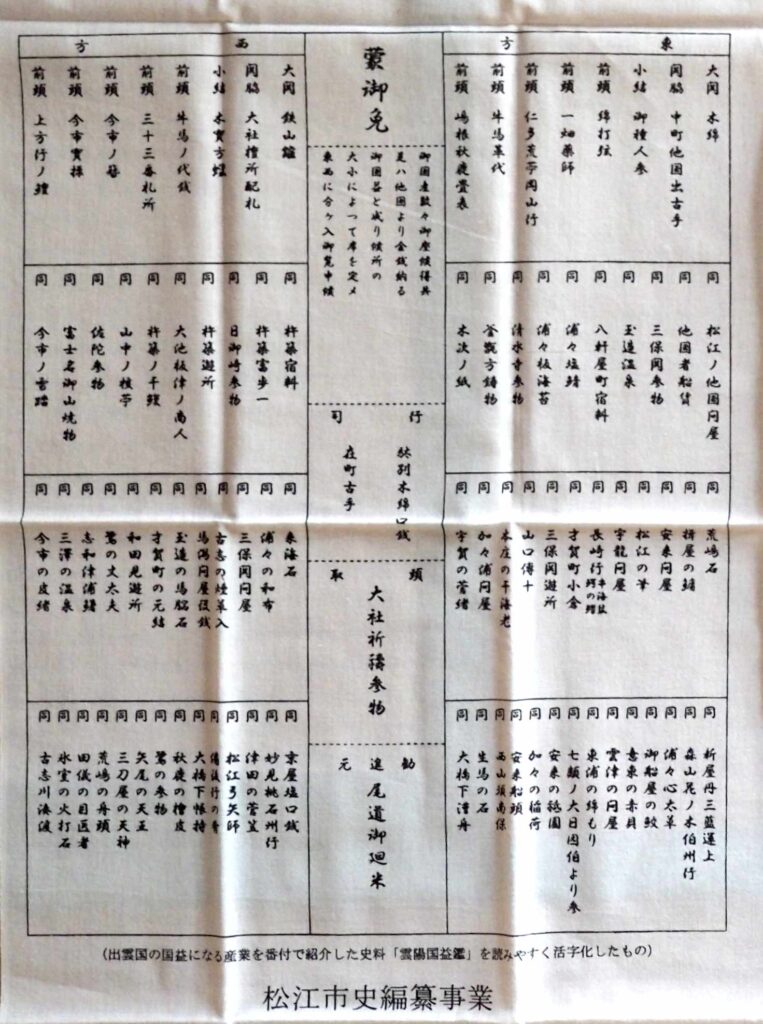 東方
大関 木綿
関脇 中町他国出古手
小結 御種人参
前頭 綿打弦
前頭 一畑薬師
前頭 仁多荒苧岡山行
前頭 牛馬革代
前頭 嶋根秋鹿畳表
同 松江ノ他国問屋
同 他国者船賃
同 三保関参物
同 玉造温泉
同 八軒屋町宿料
同 浦々塩鯖
同 浦々板海苔
同 清水寺参物
同 釜甑方鋳物
同 木次ノ紙
同 荒嶋石
同 揖屋の鱚
同 安来問屋
同 松江の筆
同 宇龍問屋
同 長崎行 干海鼠 鱶の鰭
同 才賀町小倉
同 三保関遊所
同 山口傳十
同 本庄の干海老
同 加々浦問屋
同 宇賀の菅緒
同 新屋丹三藍運上
同 森山花ノ木伯州行
同 浦々心太草
同 御船屋の蚊
同 意東の赤貝
同 雲津の問屋
同 東浦の綿もり
同 七類ノ大日因伯より参
同 安来の祇園
同 加々の稲荷
同 安来船頭
同 西山頭南保
同 生馬の石
同 大橋下漕舟
蒙御免
御国産数々御座候得共
是ハ他国より金銭納る
御国益と成り候所の
大小によって席を定メ
東西に分ヶ入御覧申候
行司
秋別木綿口銭
在町古手
頭取
大社祈祷参物
勧進元
尾道御廻米
西方
大関 鉄山鑪
関脇 大社檀所配札
小結 木実方蝋
前頭 牛馬ノ代銭
前頭 三十三番札所
前頭 今市ノ苧
前頭 今市實採
前頭 上方行ノ鱧
同 杵築宿料
同 杵築富歩一
同 日御崎参物
同 杵築遊所
同 大池板津ノ商人
同 杵築ノ干鰒
同 山中ノ枝苧
同 佐陀参物
同 富士名御山焼物
同 今市ノ雪踏
同 来海石
同 浦々の和布
同 三保関問屋
同 古志の煙草入
同 馬潟問屋役銭
同 玉造の馬脳石
同 才賀町の元結
同 和田見遊所
同 鷺の丈太夫
同 志和津浦鯖
同 三澤の温泉
同 今市の皮緒
同 京屋塩口銭
同 妙見桃石州行
同 津田の菅笠
同 松江弓矢師
同 大橋下帳持
同 秋鹿の檜皮
同 鷺の参物
同 矢尾の天王
同 三刀屋の天神
同 荒嶋の舟頭
同 田儀の目医者
同 氷室の火打石
同 古志川湊波
(出雲国の国益になる産業を番付で紹介した史料「雲陽国益鑑」を読みやすく活字化したもの)
松江市史編纂事業